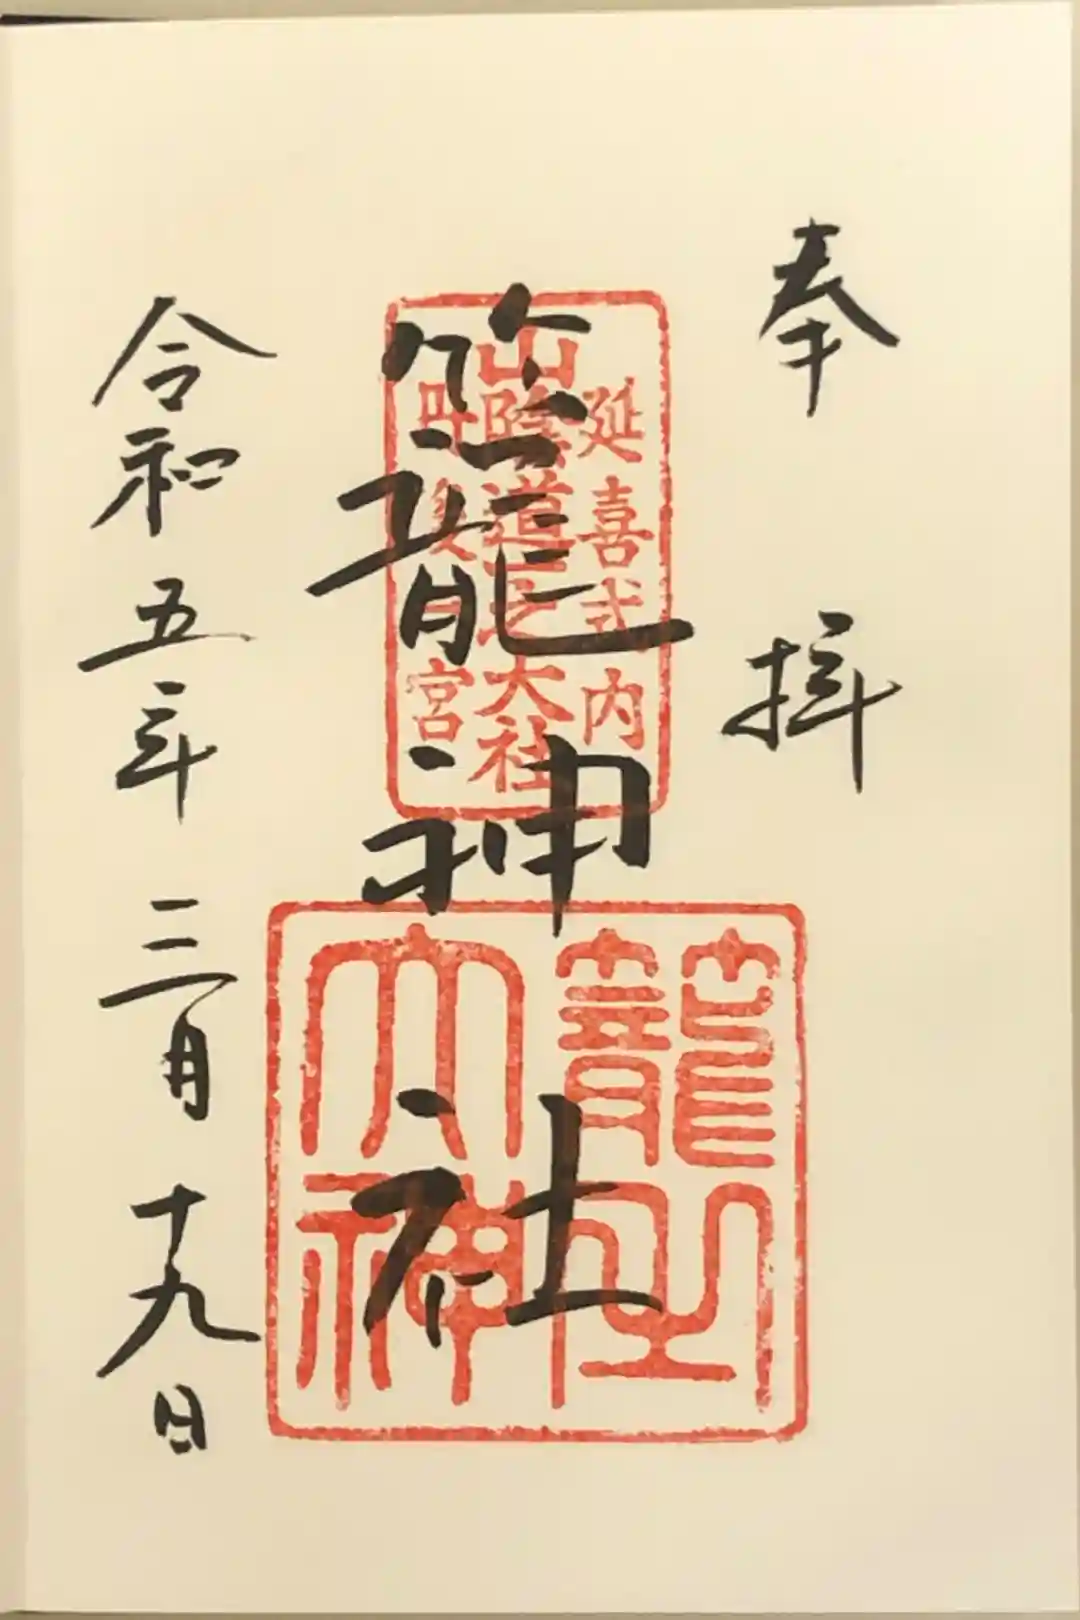 奉拝
延喜式内
山陰道之大社
丹後一宮
籠神社
大神
令和五年三月十九日